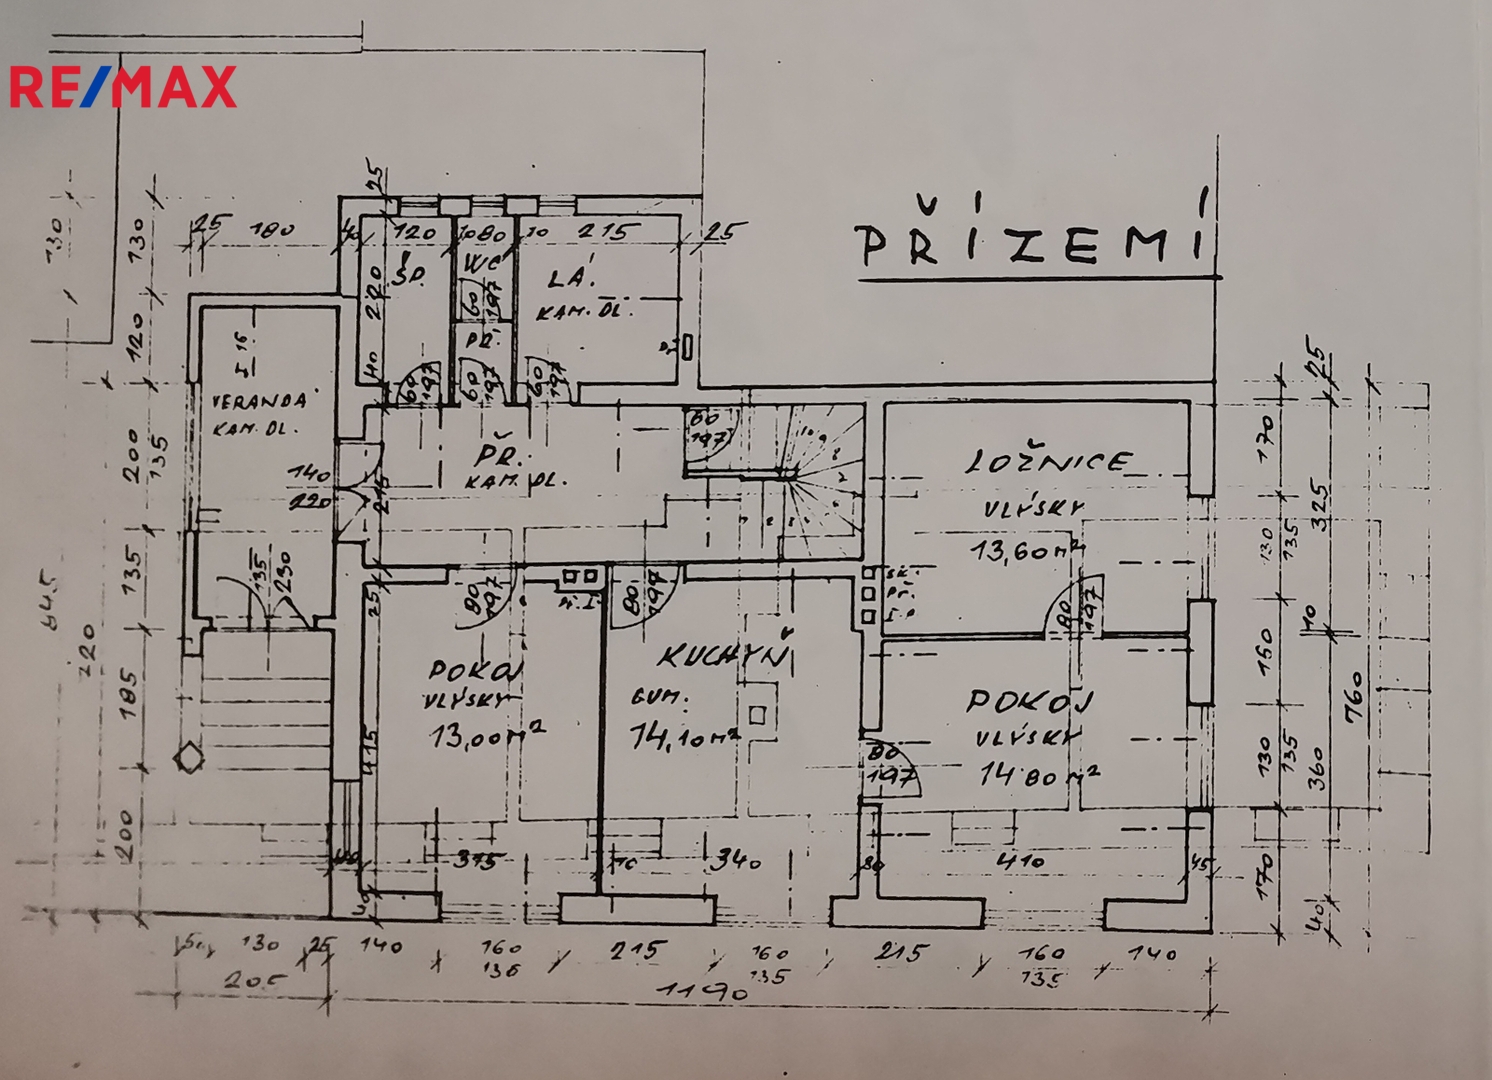 RE/MAX
PŘÍZEMÍ
25
130
130
25
180
40
120
10
80
10
215
25
ŠP.
WC
LÁ.
KAM. DL.
220
60
197
PŘ.
120
40
60
197
60
197
60
197
VERANDA
KAM. DL.
200
135
140
220
215
PŘ.
KAM. DL.
60
197
LOŽNICE
VLÝSKY
13,60 m²
170
25
325
130
135
10
135
135
230
25
80
197
80
197
80
197
645
220
185
POKOJ
VLÝSKY
13,00 m²
KUCHYŇ
GUM.
14,10 m²
POKOJ
VLÝSKY
14.80 m²
80
197
150
760
130
135
360
415
200
40
375
10
340
30
410
45
170
40
130
25
140
160
135
215
160
135
215
160
135
140
205
1190